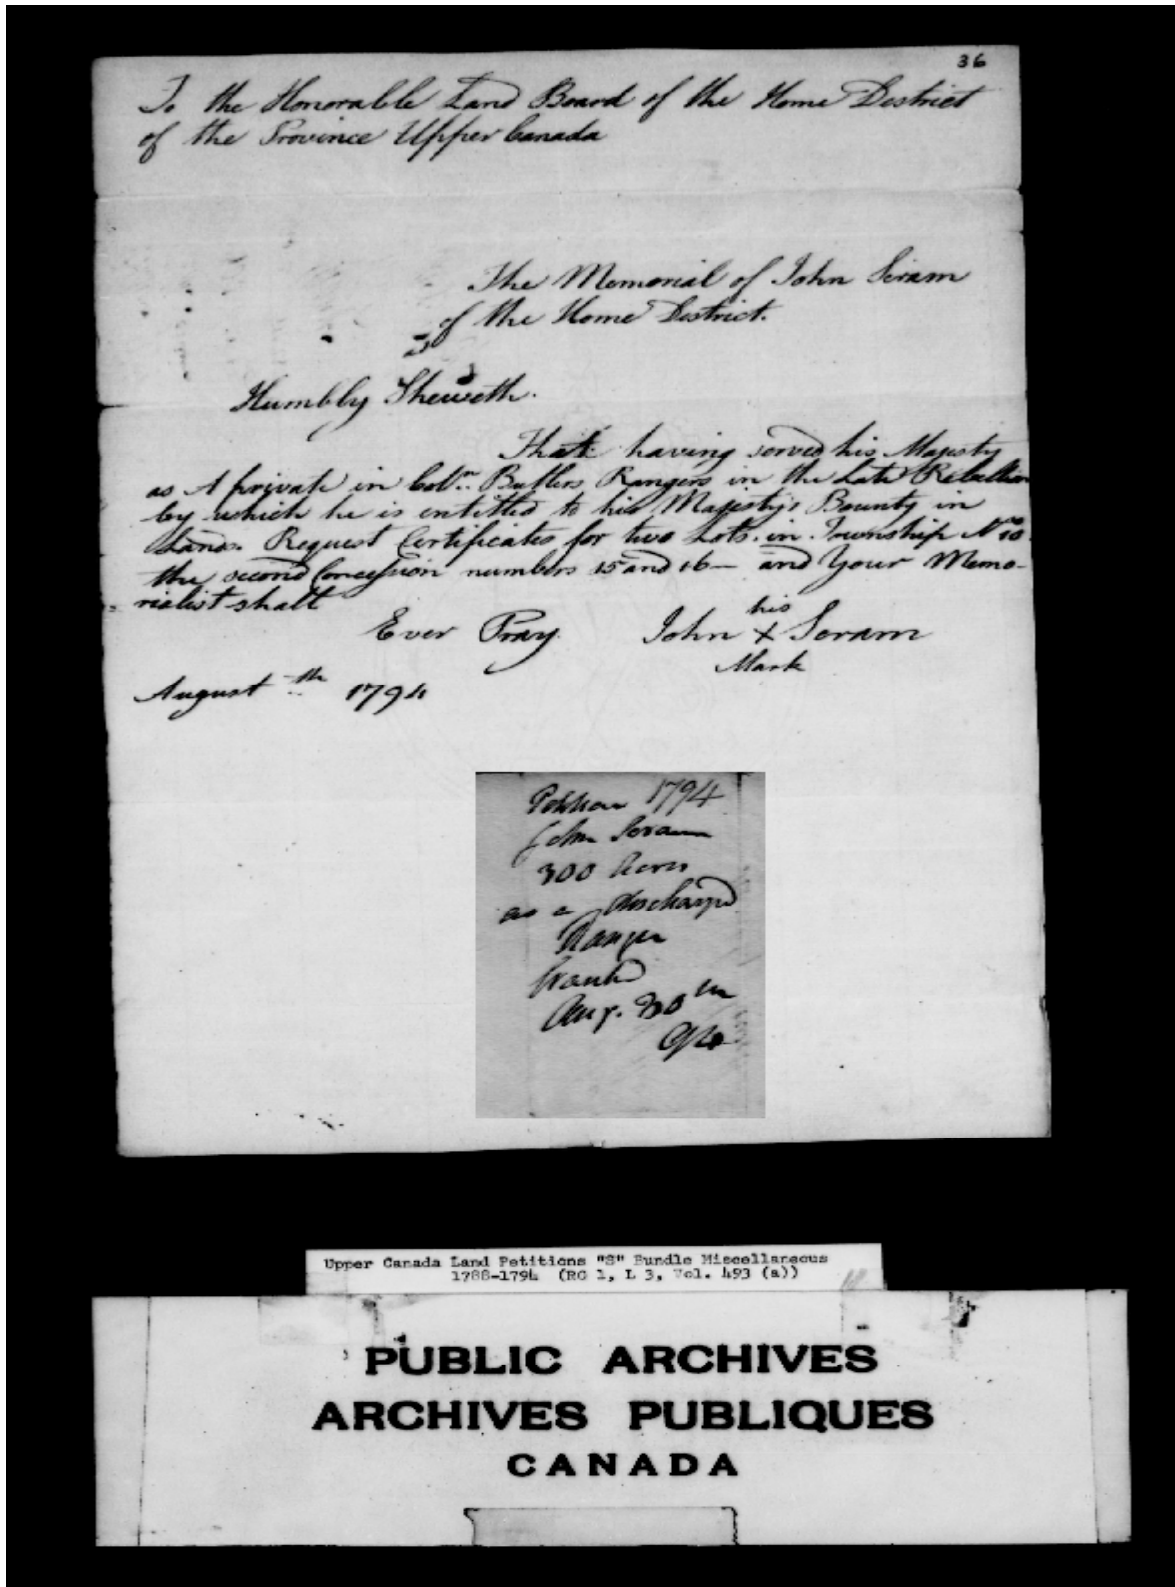 36
To the Honorable Land Board of the Home District
of the Province Upper Canada
The Memorial of John Soram
of the Home District.
Humbly Sheweth.
That having served his Majesty
as A private in Coln. Butlers Rangers in the Late Rebellion
by which he is entitled to his Majestys Bounty in
Lands. Request Certificates for two Lots in Township No 10
the second Concession numbers 15 and 16— and Your Memo-
rialist shall
Ever Pray.
his
John X Soram
Mark
August th 1794
Petition 1794
John Soram
300 Acres
as a discharged
Ranger
Granted
Aug. 30th
94
Upper Canada Land Petitions "S" Bundle Miscellaneous
1788-1794 (RG 1, L 3, Vol. 493 (a))
PUBLIC ARCHIVES
ARCHIVES PUBLIQUES
CANADA